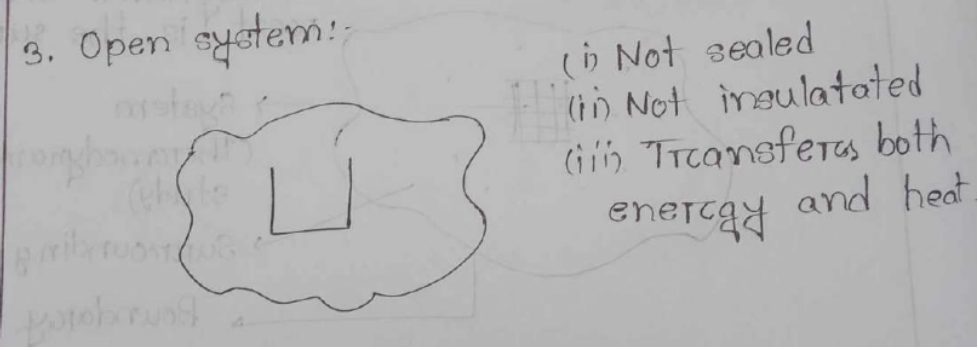 3. Open system:-
(i) Not sealed
(ii) Not insulatated
(iii) Transfers both
energy and heat.